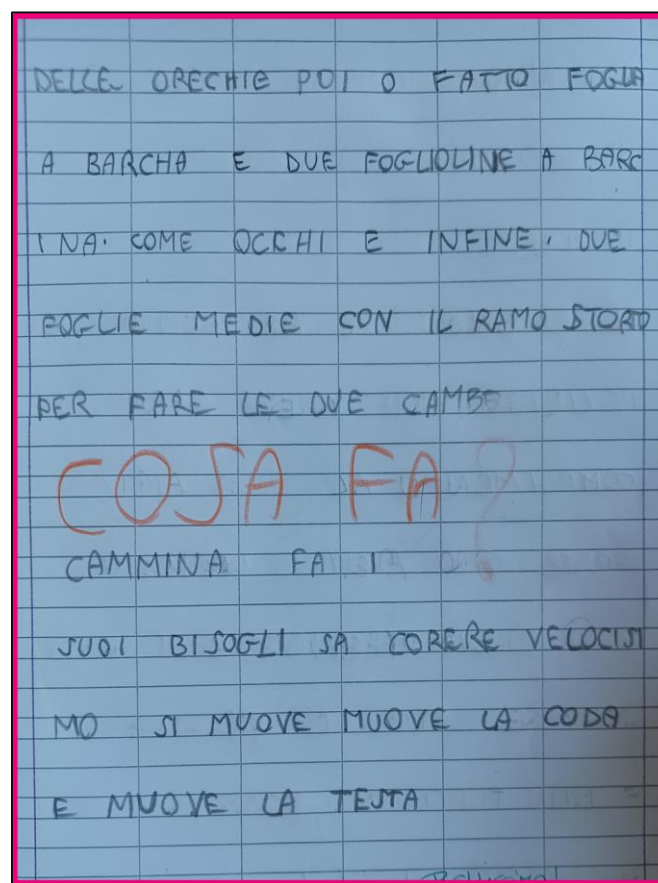 DELLE ORECHIE POI O FATTO FOGLIA
A BARCHA E DUE FOGLIOLINE A BARC
INA. COME OCCHI E INFINE, DUE
FOGLIE MEDIE CON IL RAMO STORO
PER FARE LE DUE CAMBE
COSA FA
CAMMINA FA I
SUOI BISOGLI SA CORERE VELOCISI
MO SI MUOVE MUOVE LA CODA
E MUOVE LA TESTA